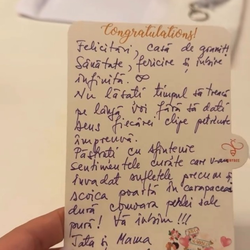 Congratulations!
Felicitări, casă de granit!
Sănătate, fericire și iubire
infinită. ∞
Nu lăsați timpul să treacă
pe lângă voi fără să dați
sens fiecărei clipe petrecute
împreună.
Păstrați cu sfințenie
sentimentele curate care v-au
invadat sufletele precum și
scoica poartă în carapacea
dură comoara perlei sale
pură! Vă iubim!!!
Tata și Mama